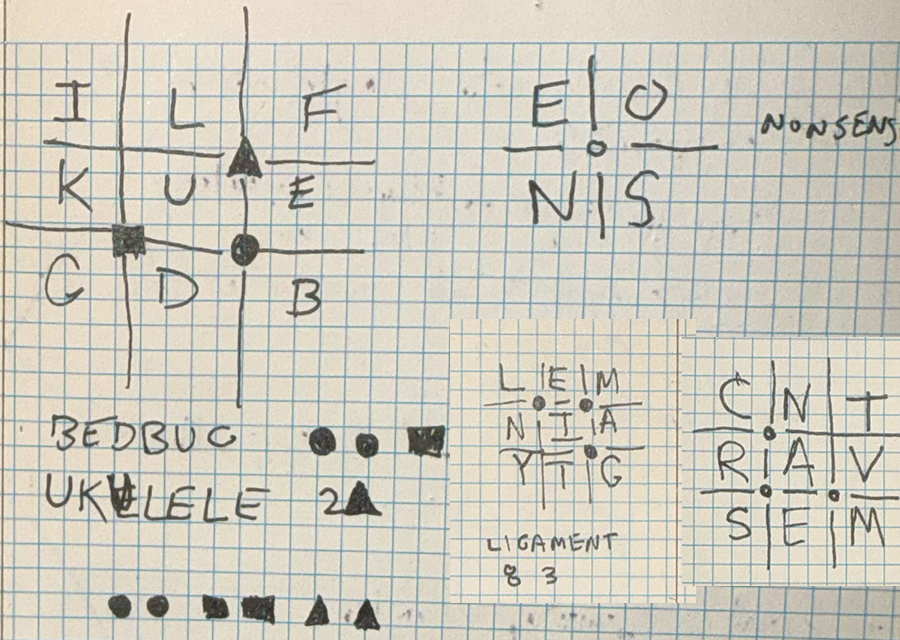 I L F
K U E
G D B
E O
N S
NONSENS
BEDBUG
UKULELE 2
L E M
N I A
Y T G
LIGAMENT
8 3
C N T
R A V
S E M